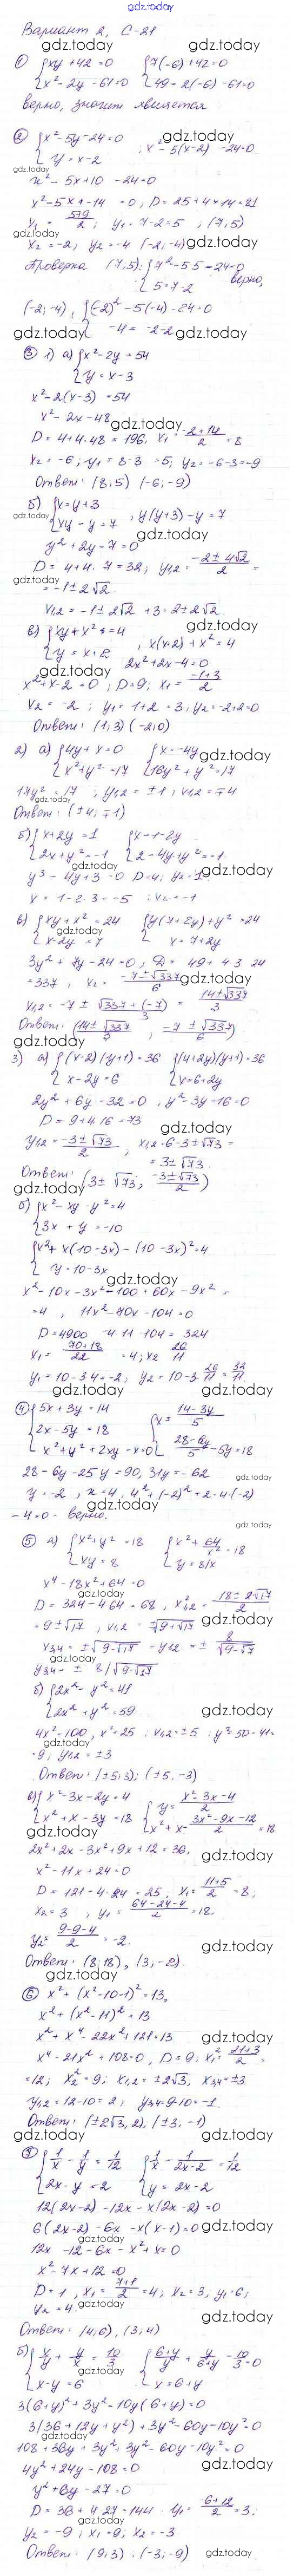 gdz.today
Вариант 2, С-21
① {xy + 42 = 0   {7(-6) + 42 = 0
{x² - 2y - 61 = 0   {49 - 2(-6) - 61 = 0
верно, значит является
② {x² - 5y - 24 = 0 ; x² - 5(x-2) - 24 = 0
{y = x - 2
x² - 5x + 10 - 24 = 0
x² - 5x + -14 = 0, D = 25 + 4·14 = 81
x₁ = 5+9/2 ; y₁ = 7-2 = 5 ; (7; 5)
x₂ = -2; y₂ = -4 (-2; -4)
Проверка (7; 5): {7² - 5·5 - 24 = 0 верно,
{5 = 7-2
(-2; -4), {(-2)² - 5(-4) - 24 = 0
{-4 = -2-2
③ 1) а) {x² - 2y = 54
{y = x - 3
x² - 2(x-3) = 54
x² - 2x - 48
D = 4 + 4·48 = 196. x₁ = -2+14/2 = 8
x₂ = -6; y₁ = 8-3 = 5; y₂ = -6-3 = -9
Ответ: (8; 5) (-6; -9)
б) {x = y + 3
{xy - y = 7 , y(y+3) - y = 7
y² + 2y - 7 = 0
D = 4 + 4·7 = 32; y₁,₂ = -2 ± 4√2/2 =
= -1 ± 2√2
x₁,₂ = -1 ± 2√2 + 3 = 2 ± 2√2
в) {xy + x² = 4
{y = x + 2 , x(x+2) + x² = 4
2x² + 2x - 4 = 0
x² + x - 2 = 0 ; D = 9; x₁ = -1+3/2
x₂ = -2 ; y₁ = 1+2 = 3; y₂ = -2+2 = 0
Ответ: (1; 3) (-2; 0)
2) а) {4y + x = 0   {x = -4y
{x² + y² = 17   {16y² + y² = 17
17y² = 17 ; y₁,₂ = ±1 ; x₁,₂ = ∓4
Ответ: (±4; ∓1)
б) {x + 2y = 1   {x = 1-2y
{2x + y² = -1   {2 - 4y + y² = -1
y² - 4y + 3 = 0 D = 4; y₂ = 1
x = 1 - 2·3 = -5 ; x₂ = -1
в) {xy + x² = 24   {y(7+2y) + y² = 24
{x - 2y = 7   {x = 7 + 2y
3y² + 7y - 24 = 0; D = 49 + 4·3·24
= 337, x₂ = -7 ± √337/6
x₁,₂ = -7 ± √337 + (-7)/3 = 14 ± √337/3
Ответ: (14 ± √337/3 ; -7 ± √337/6)
3) а) {(x-2)(y+1) = 36   {(4+2y)(y+1) = 36
{x - 2y = 6   {x = 6 + 2y
2y² + 6y - 32 = 0 ; y² - 3y - 16 = 0
D = 9 + 4·16 = 73
y₁,₂ = -3 ± √73/2 ; x₁,₂ = 6 - 3 ± √73 =
= 3 ± √73
Ответ: (3 ± √73; -3 ± √73/2)
б) {x² - xy - y² = 4
{3x + y = -10
{x² + x(10-3x) - (10-3x)² = 4
{y = 10 - 3x
x² - 10x - 3x² - 100 + 60x - 9x² =
= 4 , 11x² - 70x - 104 = 0
D = 4900 - 4·11·104 = 324
x₁ = 70+18/22 = 4; x₂ 26/11
y₁ = 10 - 3·4 = -2; y₂ = 10 - 3·26/11 = 32/11
④ {5x + 3y = 14   {x = 14-3y/5
{2x - 5y = 18
{x² + y² + 2xy - x = 0   {28-6y/5 - 5y = 18
28 - 6y - 25y = 90, 31y = -62
y = -2 , x = 4, 4² + (-2)² + 2·4·(-2)
-4 = 0 - верно.
⑤ а) {x² + y² = 18   {x² + 64/x² = 18
{xy = 8   {y = 8/x
x⁴ - 18x² + 64 = 0
D = 324 - 4·64 = 68, x²₁,₂ = 18 ± 2√17/2
= 9 ± √17, x₁,₂ = √9+√17
x₃,₄ = ±√9-√17 - y₁,₂ = ± 8/√9-√7
y₃,₄ = ± 8/√9-√17
б) {2x² - y² = 41
{2x² + y² = 59
4x² = 100, x² = 25 ; x₁,₂ = ±5 ; y² = 50 - 41 =
= 9; y₁,₂ = ±3
Ответ: (±5; 3); (±5, -3)
в) {x² - 3x - 2y = 4   {y = x²-3x-4/2
{x² + x - 3y = 18   {x² + x - 3x²-9x-12/2 = 18
2x² + 2x - 3x² + 9x + 12 = 36,
x² - 11x + 24 = 0
D = 121 - 4·24 = 25, x₁ = 11+5/2 = 8;
x₂ = 3 , y₁ = 64-24-4/2 = 18;
y₂ = 9-9-4/2 = -2.
Ответ: (8; 18), (3, -2)
⑥ x² + (x² - 10 - 1)² = 13,
x² + (x² - 11)² + 13
x² + x⁴ - 22x² + 121 = 13
x⁴ - 21x² + 108 = 0, D = 9; x₁² = 21+3/2 =
= 12; x₂² = 9; x₁,₂ = ±2√3, x₃,₄ = ±3
y₁,₂ = 12 - 10 = 2; y₃,₄ = 9 - 10 = -1
Ответ: (±2√3, 2), (±3, -1)
⑦ {1/x - 1/y = 1/12   {1/x - 1/2x-2 = 1/12
{2x - y = 2   {y = 2x - 2
12(2x-2) - 12x - x(2x-2) = 0
6(2x-2) - 6x - x(x-1) = 0
12x - 12 - 6x - x² + x = 0
x² - 7x + 12 = 0
D = 1, x₁ = 7+1/2 = 4; x₂ = 3, y₁ = 6;
y₂ = 4.
Ответ: (4; 6), (3; 4)
б) {x/y + y/x = 10/3   {6+y/y + y/6+y - 10/3 = 0
{x - y = 6   {x = 6 + y
3(6+y)² + 3y² - 10y(6+y) = 0
3(36 + 12y + y²) + 3y² - 60y - 10y² = 0
108 + 36y + 3y² + 3y² - 60y - 10y² = 0
4y² + 24y - 108 = 0
y² + 6y - 27 = 0
D = 36 + 4·27 = 144 y₁ = -6+12/2 = 3;
y₂ = -9 ; x₁ = 9; x₂ = -3
Ответ: (9; 3) ; (-3; -9)